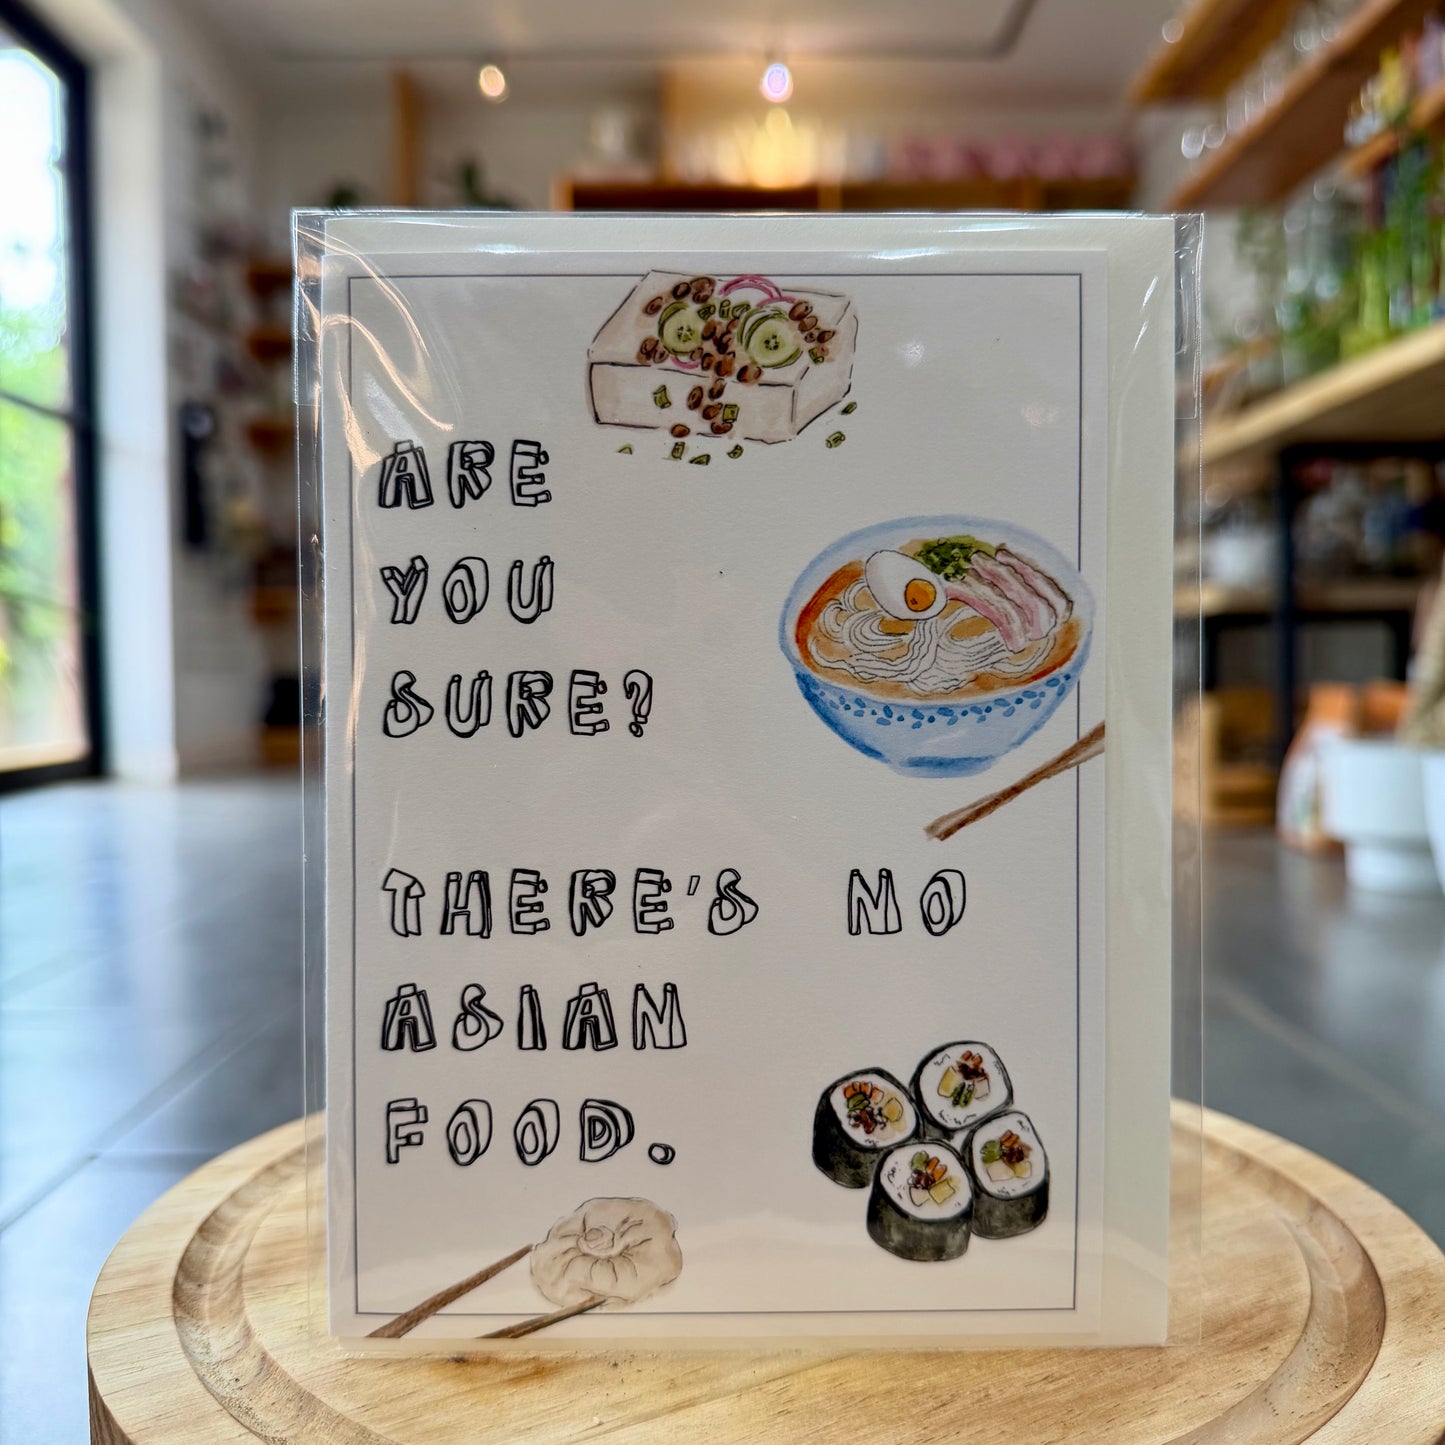 ARE
YOU
SURE?
THERE'S NO
ASIAN
FOOD.